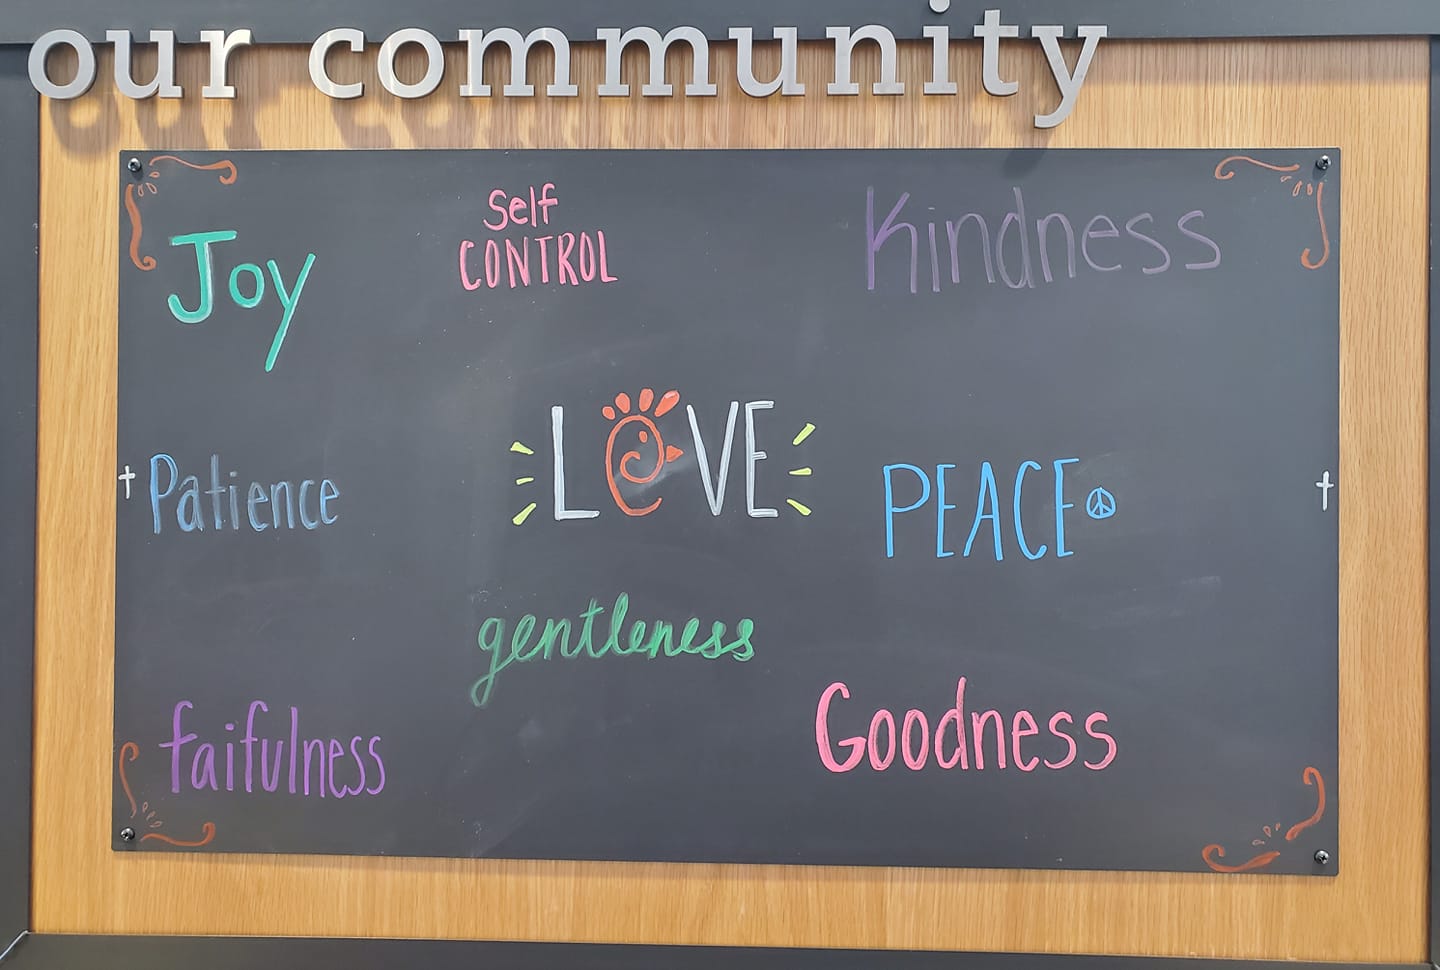 our community
Joy
Self
CONTROL
Kindness
Patience
LOVE
PEACE
gentleness
faifulness
Goodness